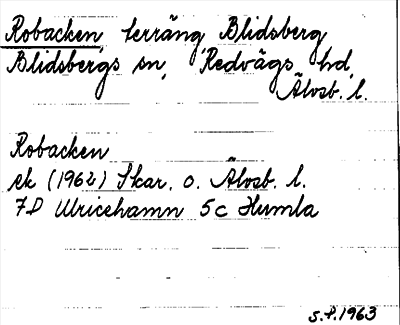 Robacken, terräng Blidsberg
Blidsbergs sn, Redvägs hd,
Älvsb. l.
Robacken
ek (1962) Skar. o. Älvsb. l.
7D Ulricehamn 5c Humla
S.P. 1963